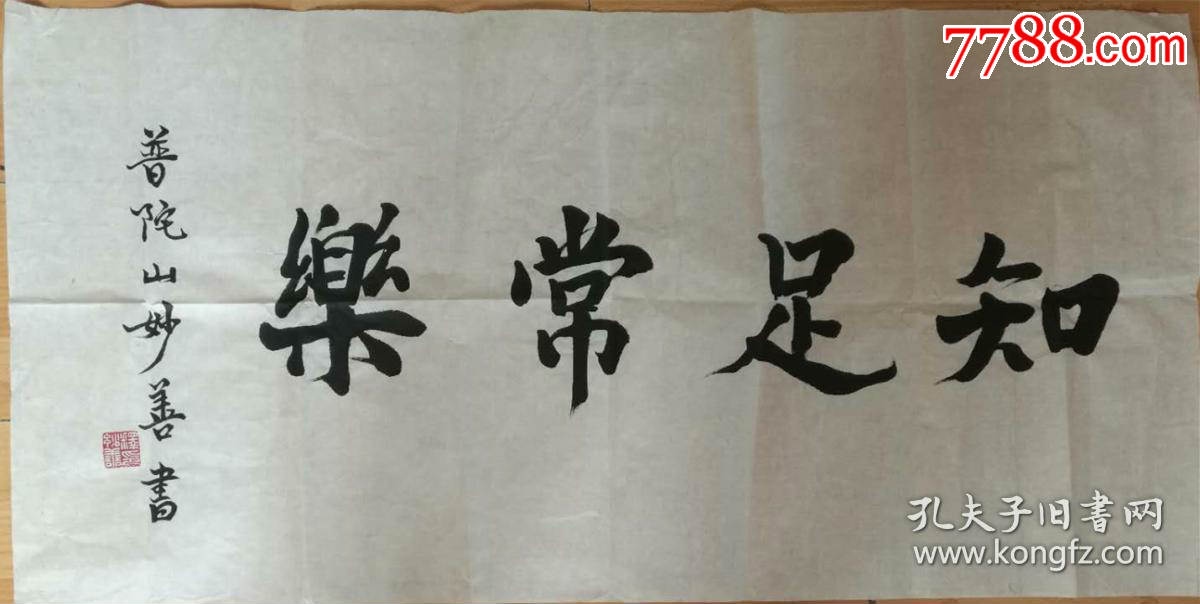 7788.com
知足常樂
普陀山妙善書
孔夫子旧書网
www.kongfz.com